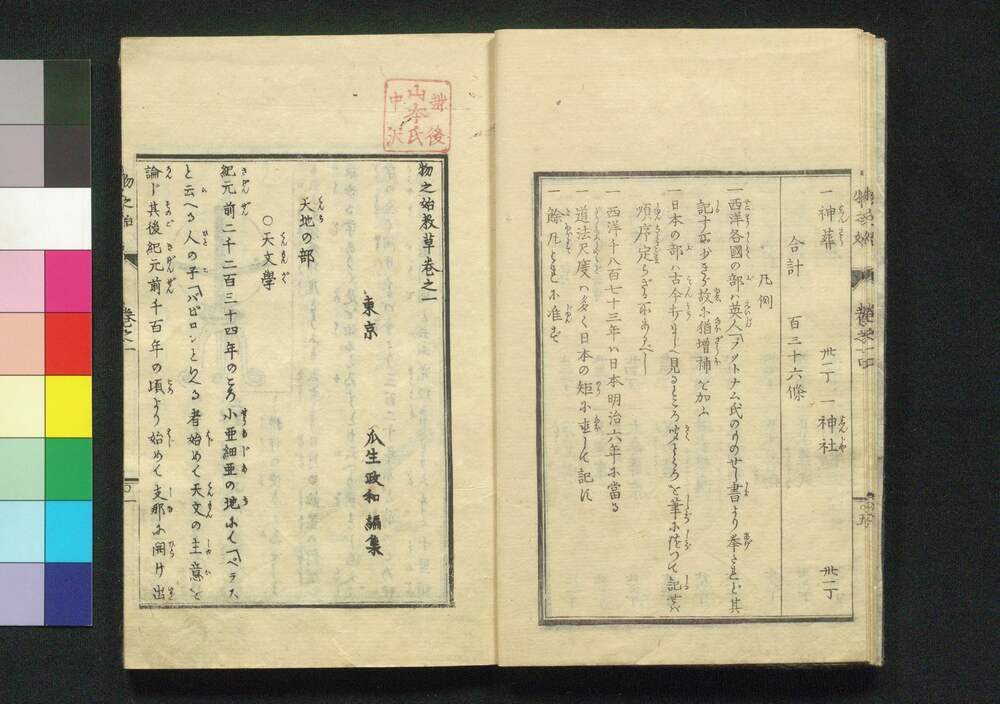 一神葬 卅一丁 一神社 卅一丁
合計 百三十六條
凡例
一西洋各國の部ハ英人「プットナム氏のものせし書より挙たれど其
記す所少きが故に猶増補を加ふ
一日本の部ハ古今
順序定らざる所あるべし
一西洋千八百七十三年ハ日本明治六年に當る
一道法尺度ハ多く日本の矩に直して記せり
餘凡これに准ず
物之始教草巻之一
東京 瓜生政和編集
天地の部
○天文學
紀元前二千二百三十四年のころ小亜細亜の地にて「ベラス
と云へる人の子「バビロンといへる者始めて天文の主意を
論じ其後紀元前千百年の頃より始めて支那に開け出
豊後
山本氏
中沢
物之始 巻之一